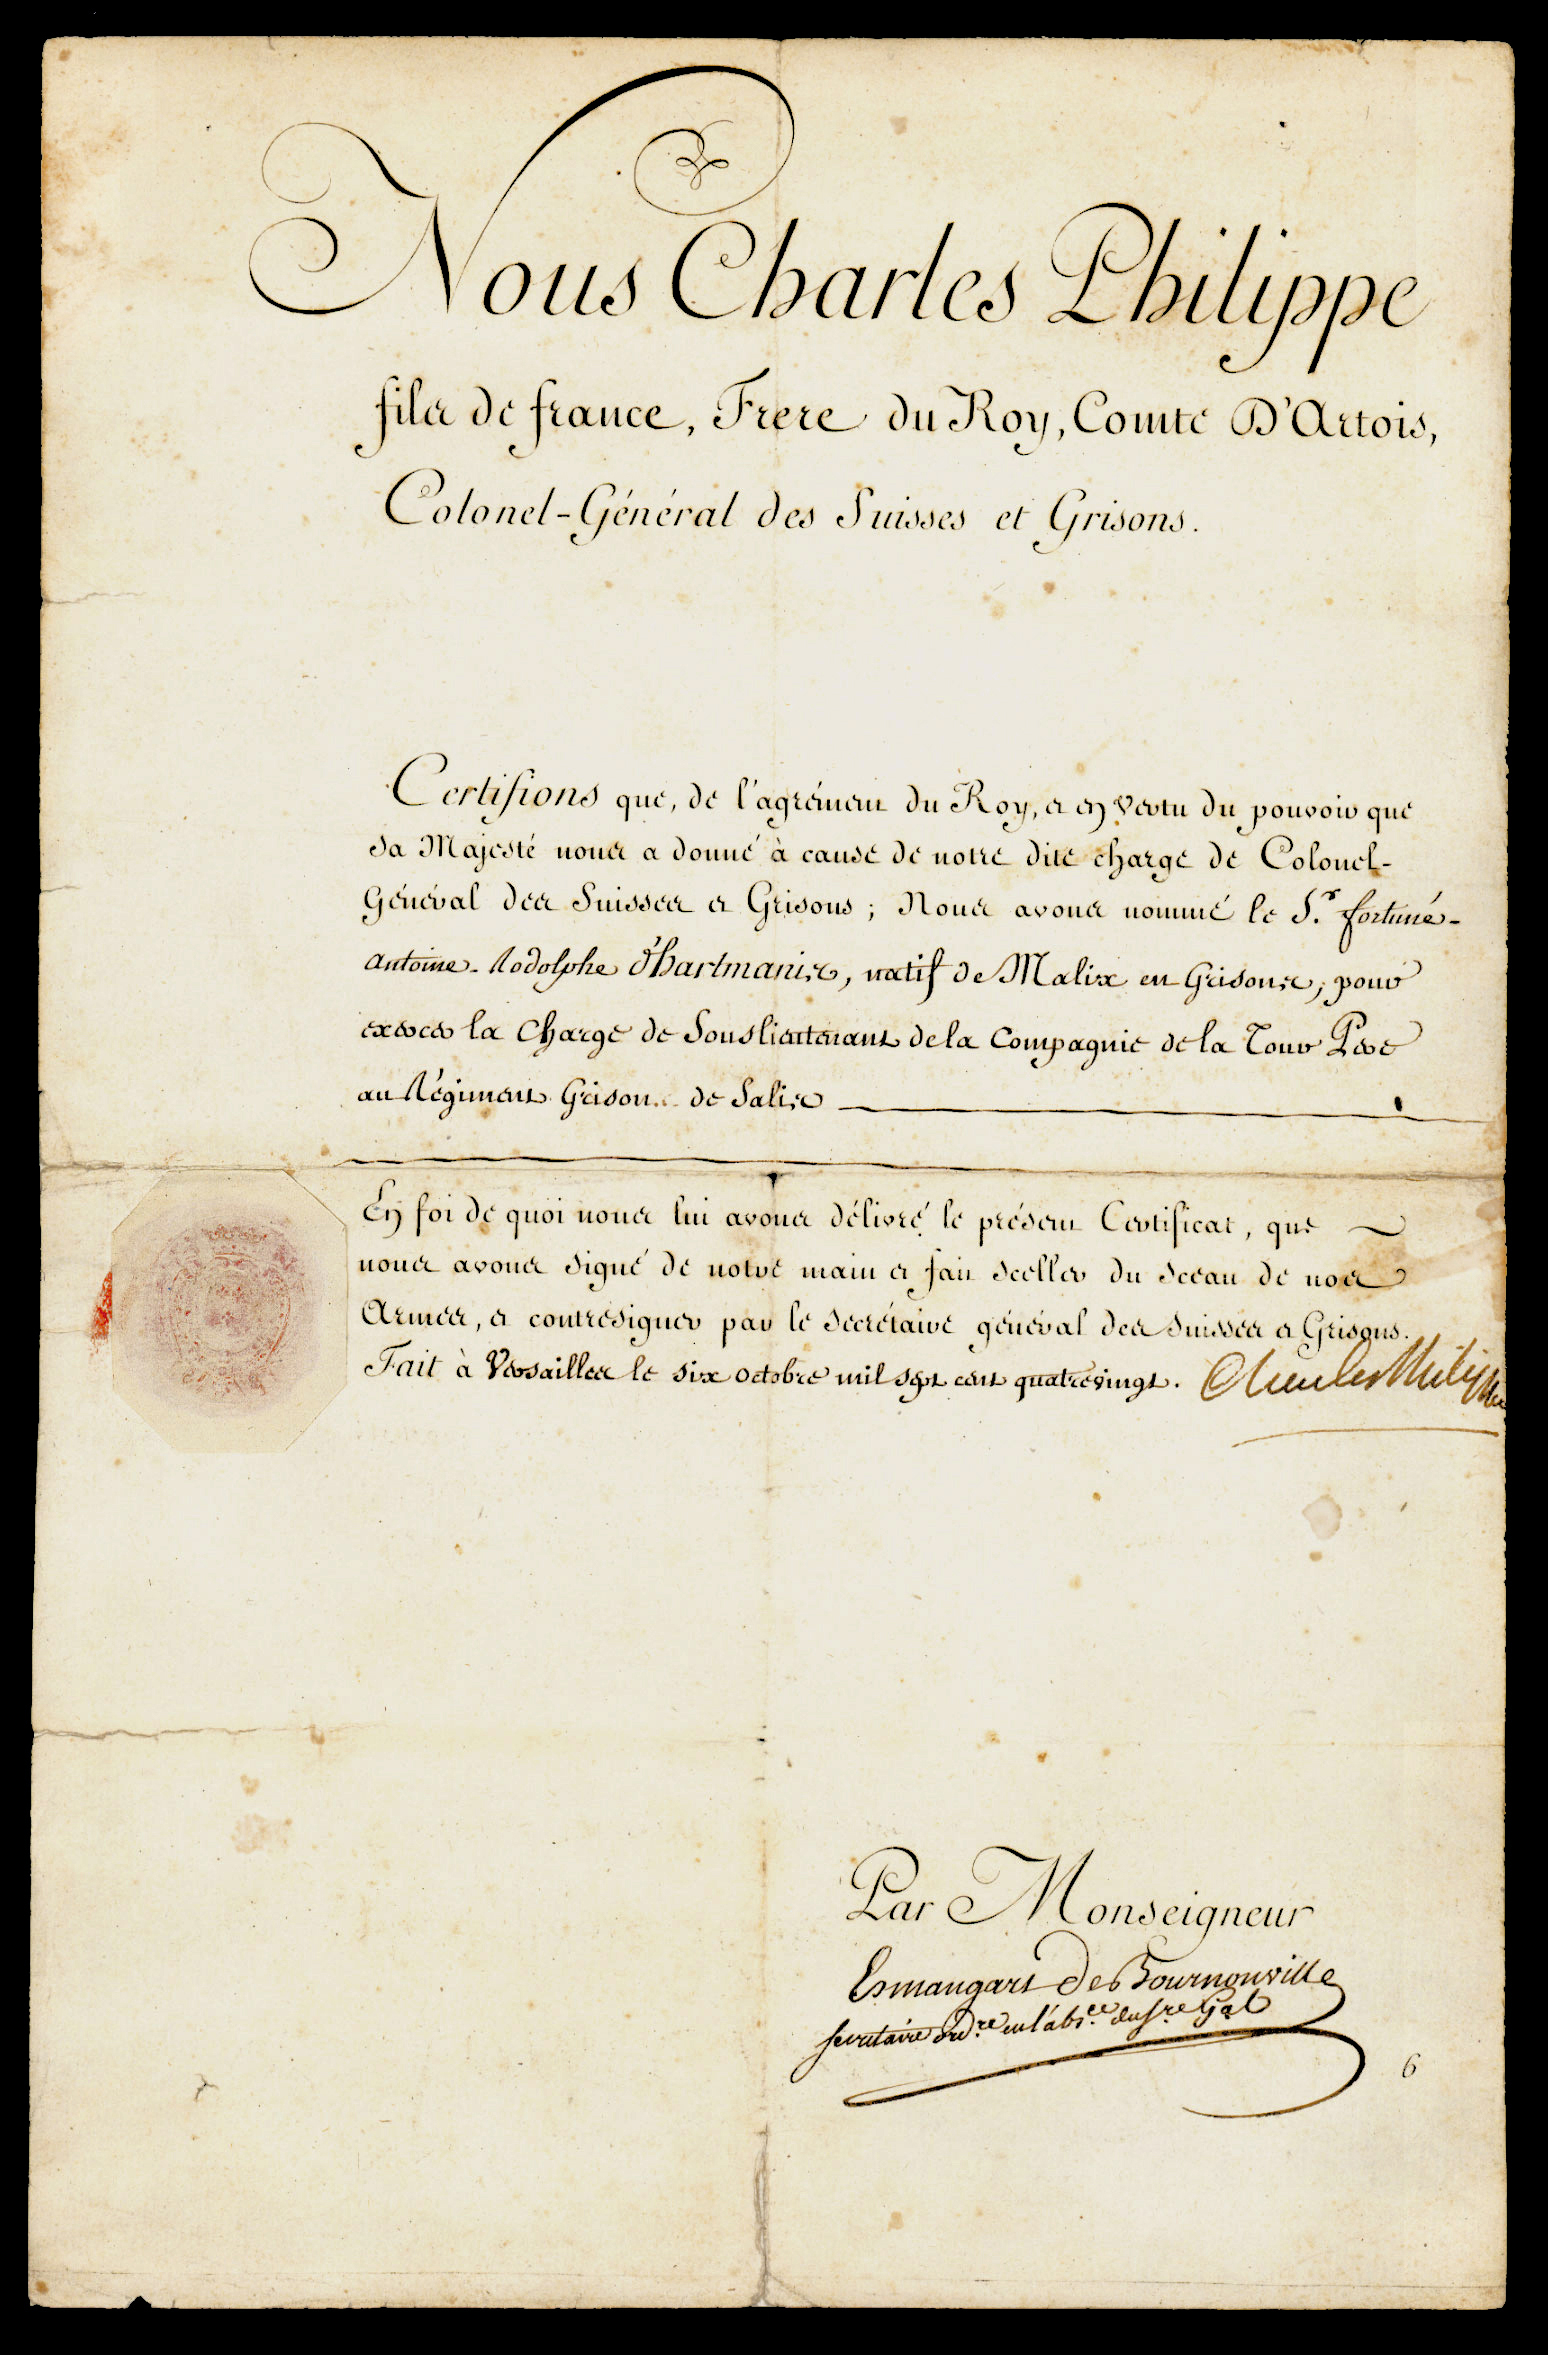 Nous Charles Philippe
fils de france, Frere du Roy, Comte D'Artois,
Colonel-Général des Suisses et Grisons.
Certifions que, de l'agrément du Roy, et en vertu du pouvoir que
sa Majesté nous a donné à cause de notre dite charge de Colonel-
Général des Suisses et Grisons ; Nous avons nommé le S.r fortuné-
antoine-Rodolphe d'hartmanis, natif de Malix en Grisons, pour
exercer la Charge de Souslieutenant de la Compagnie de la Tour Pere
au Régiment Grison de Salis
En foi de quoi nous lui avons délivré le présent Certificat, que
nous avons signé de notre main et fait sceller du sceau de nos
Armes, et contresigner par le secrétaire général des suisses et Grisons.
Fait à Versailles le six octobre mil sept cent quatrevingt. Charles Philippe
Par Monseigneur
Esmangart de Bournonville
secretaire ord.re en l'abs.ce du s.re Gal
6